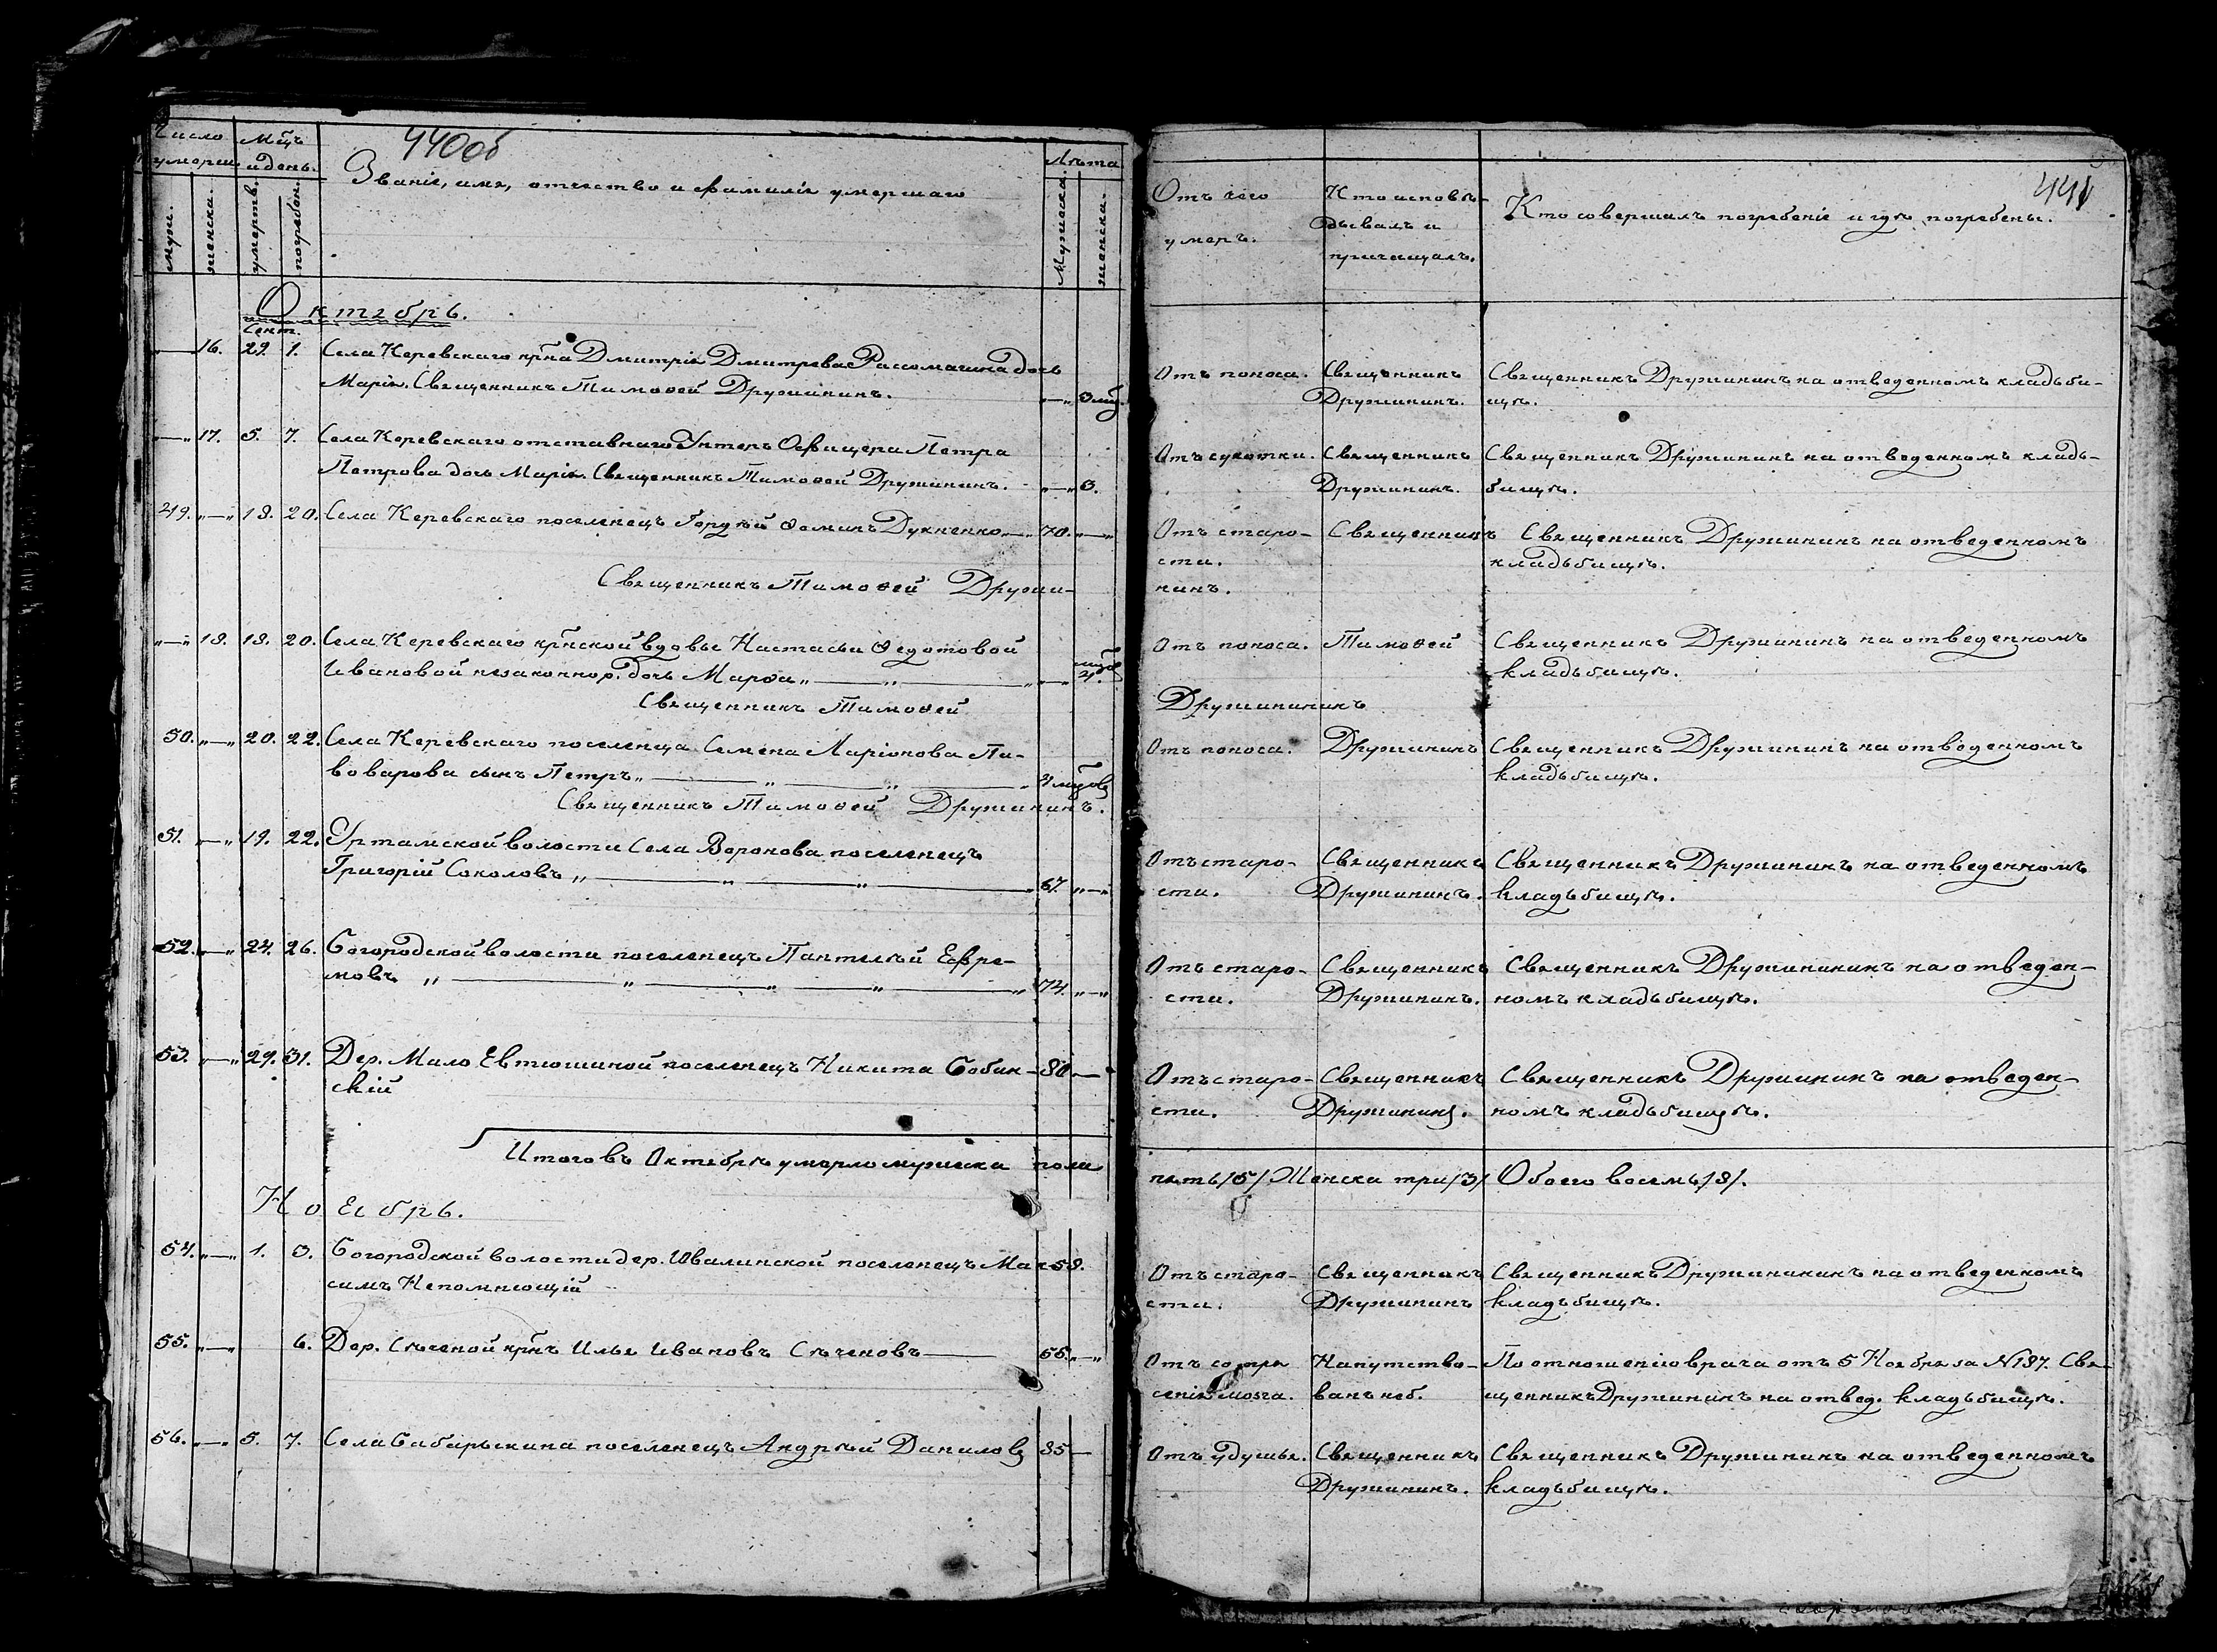 440об
Число умерш.
Мц҃ъ и день.
Званіе, имя, отчество и фамилія умершаго
Лѣта
муж.
женска.
умертв.
погребен.
Мужеска.
женска.
Октябрь.
Сент.
"—" 16. 29. 1. Села Керевскаго кр҃на Дмитрія Дмитрева Рассомагина дочь
Марія. Священникъ Тимоѳей Дружининъ. "—" 3 мц.
"—" 17. 5. 7. Села Керевскаго отставнаго Унтеръ Офицера Петра
Петрова дочь Марія. Священникъ Тимоѳей Дружининъ. "—" 3.
49. "—" 18. 20. Села Керевскаго поселенецъ Гордѣй Ѳоминъ Дукненко "—" 70. "—"
Священникъ Тимоѳей Дружи-
"—" 18. 18. 20. Села Керевскаго кр҃нской вдовы Настасьи Ѳедотовой
Ивановой незаконнор. дочь Марѳа "—" "—" 4. мцов
Священникъ Тимоѳей
50. "—" 20. 22. Села Керевскаго поселенца Семена Ларіонова Пи-
воварова сынъ Петръ "—" 4 мцовъ
Священникъ Тимоѳей Дружининъ.
51. "—" 19. 22. Уртамской волости Села Воронова поселенецъ
Григорій Соколовъ "—" 67. "—"
52. "—" 24. 26. Богородской волости поселенецъ Пантелѣй Ефре-
мовъ "—" 74. "—"
53. "—" 29. 31. Дер. Мало Евтюшиной поселенецъ Никита Бобин- 80 —
скій
Итого въ Октябрѣ умерло мужеска пола
Ноябрь.
54. "—" 1. 3. Богородской волости дер. Ивалинской поселенецъ Мак- 58.
симъ Непомнющій
55. "—" 6. Дер. Сѣченой кр҃нъ Илья Ивановъ Сѣченовъ — 55. "—"
56. "—" 5. 7. Села Бабарыкина поселенецъ Андрѣй Даниловъ 85 —
441
Отъ чего
умеръ.
Кто исповѣ-
дывалъ и
причащалъ.
Кто совершалъ погребеніе и гдѣ погребены.
Отъ поноса. Священникъ Священникъ Дружининъ на отведенномъ кладьби-
Дружининъ. щѣ.
Отъ сухотки. Священникъ Священникъ Дружининъ на отведенномъ кладь-
Дружининъ. бищѣ.
Отъ старо- Священникъ Священникъ Дружининъ на отведенномъ
сти. кладьбищѣ.
нинъ.
Отъ поноса. Тимоѳей Священникъ Дружининъ на отведенномъ
кладьбищѣ.
Дружининъ
Отъ поноса. Дружининъ Священникъ Дружининъ на отведенномъ
кладьбищѣ.
Отъ старо- Священникъ Священникъ Дружининъ на отведенномъ
сти. Дружининъ. кладьбищѣ.
Отъ старо- Священникъ Священникъ Дружининъ на отведен-
сти. Дружининъ. номъ кладьбищѣ.
Отъ старо- Священникъ Священникъ Дружининъ на отведен-
сти. Дружининъ. номъ кладьбищѣ.
пять /5/ Женска три /3/ Обоего восемь /8/.
Отъ старо- Священникъ Священникъ Дружининъ на отведенномъ
сти. Дружининъ кладьбищѣ.
Отъ сотря- Напутство- По отношенію врача отъ 5 Ноября за №187. Свя-
сенія мозга. ванъ неб. щенникъ Дружининъ на отвед. кладьбищѣ.
Отъ удушья. Священникъ Священникъ Дружининъ на отведенномъ
Дружининъ. кладьбищѣ.